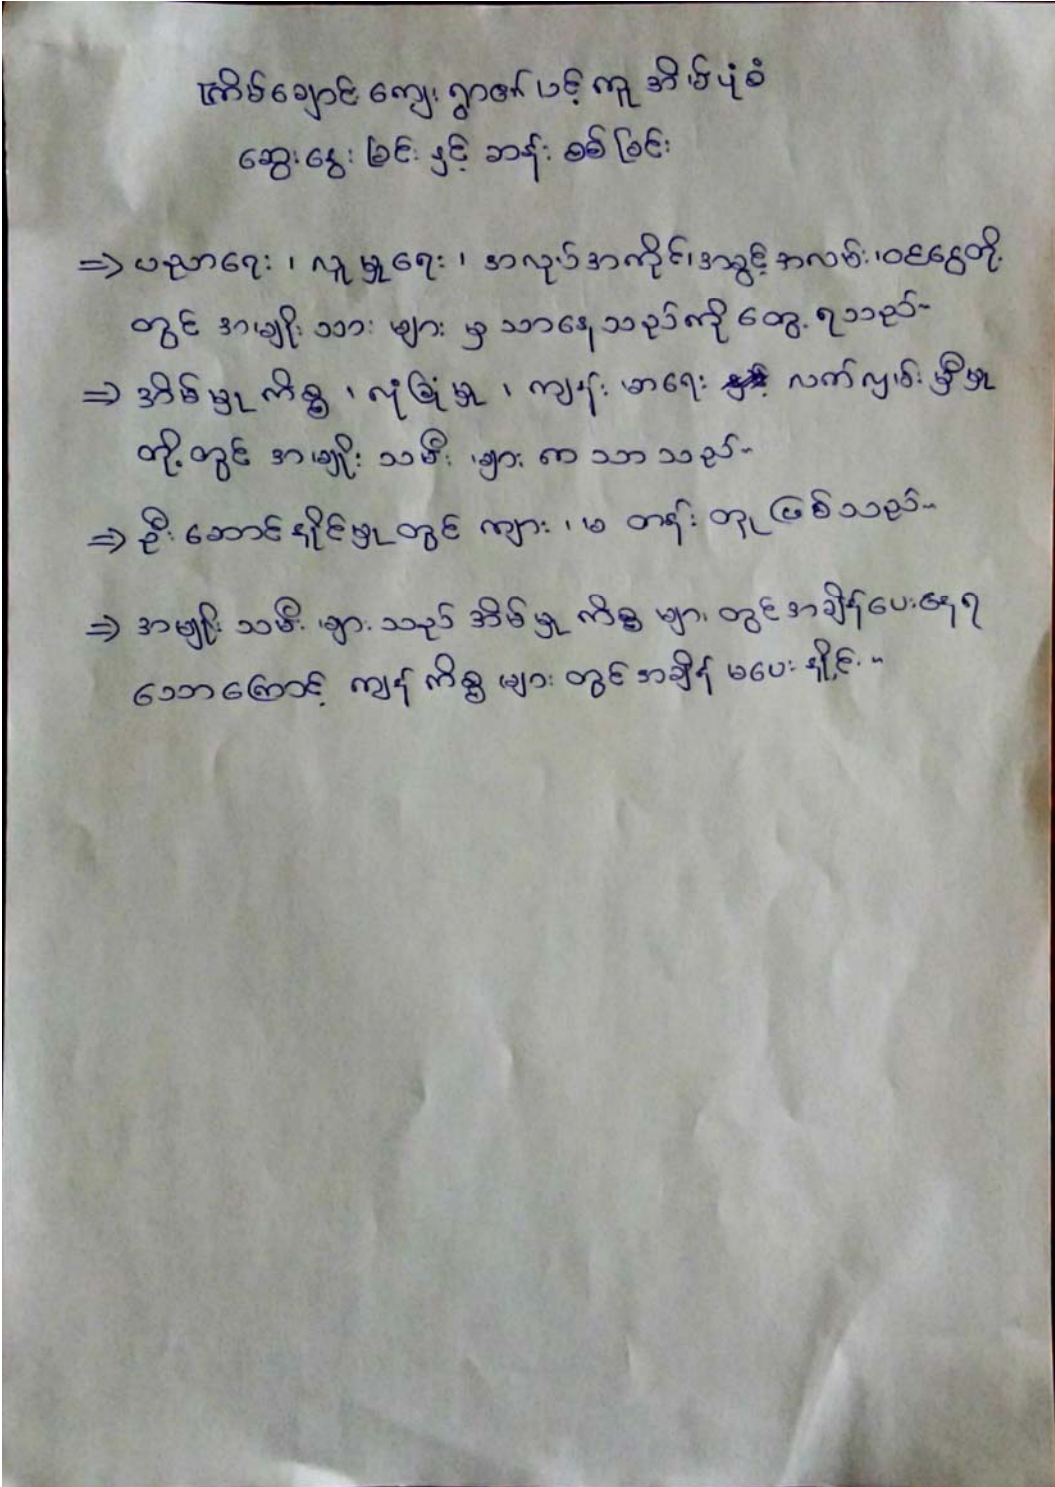 ကြိမ်ချောင်းကျေးရွာ၏ ပင့်ကူအိမ်ပုံစံ
ဆွေးနွေးခြင်းနှင့် ဆန်းစစ်ခြင်း
⇒ ပညာရေး၊ လူမှုရေး၊ အလုပ်အကိုင်၊ အခွင့်အလမ်း၊ ဝင်ငွေတို့
တွင် အမျိုးသားများမှ သာနေသည်ကို တွေ့ရသည်။
⇒ အိမ်မှုကိစ္စ၊ လုံခြုံမှု၊ ကျန်းမာရေး လက်လှမ်းမှီမှု
တို့တွင် အမျိုးသမီးများက သာသည်။
⇒ ဦးဆောင်နိုင်မှုတွင် ကျား၊ မ တန်းတူဖြစ်သည်။
⇒ အမျိုးသမီးများသည် အိမ်မှုကိစ္စများတွင် အချိန်ပေးနေရ
သောကြောင့် ကျန်ကိစ္စများတွင် အချိန်မပေးနိုင်။